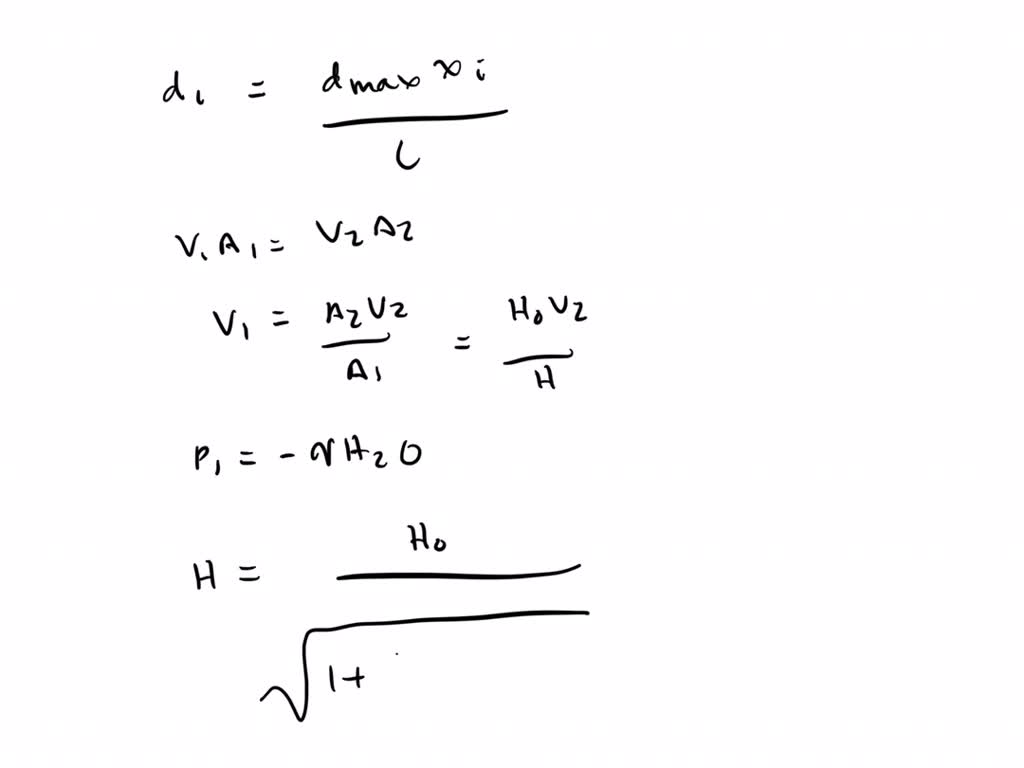 d₁ = dmax xi / L
V₁A₁ = V₂A₂
V₁ = A₂V₂ / A₁ = H₀V₂ / H
P₁ = -γH₂O
H = H₀ / √1+